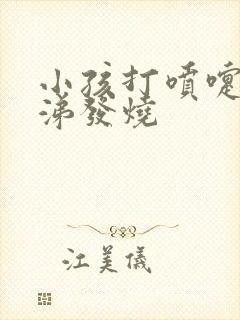 小孩打噴嚏
涕發燒
江美儀